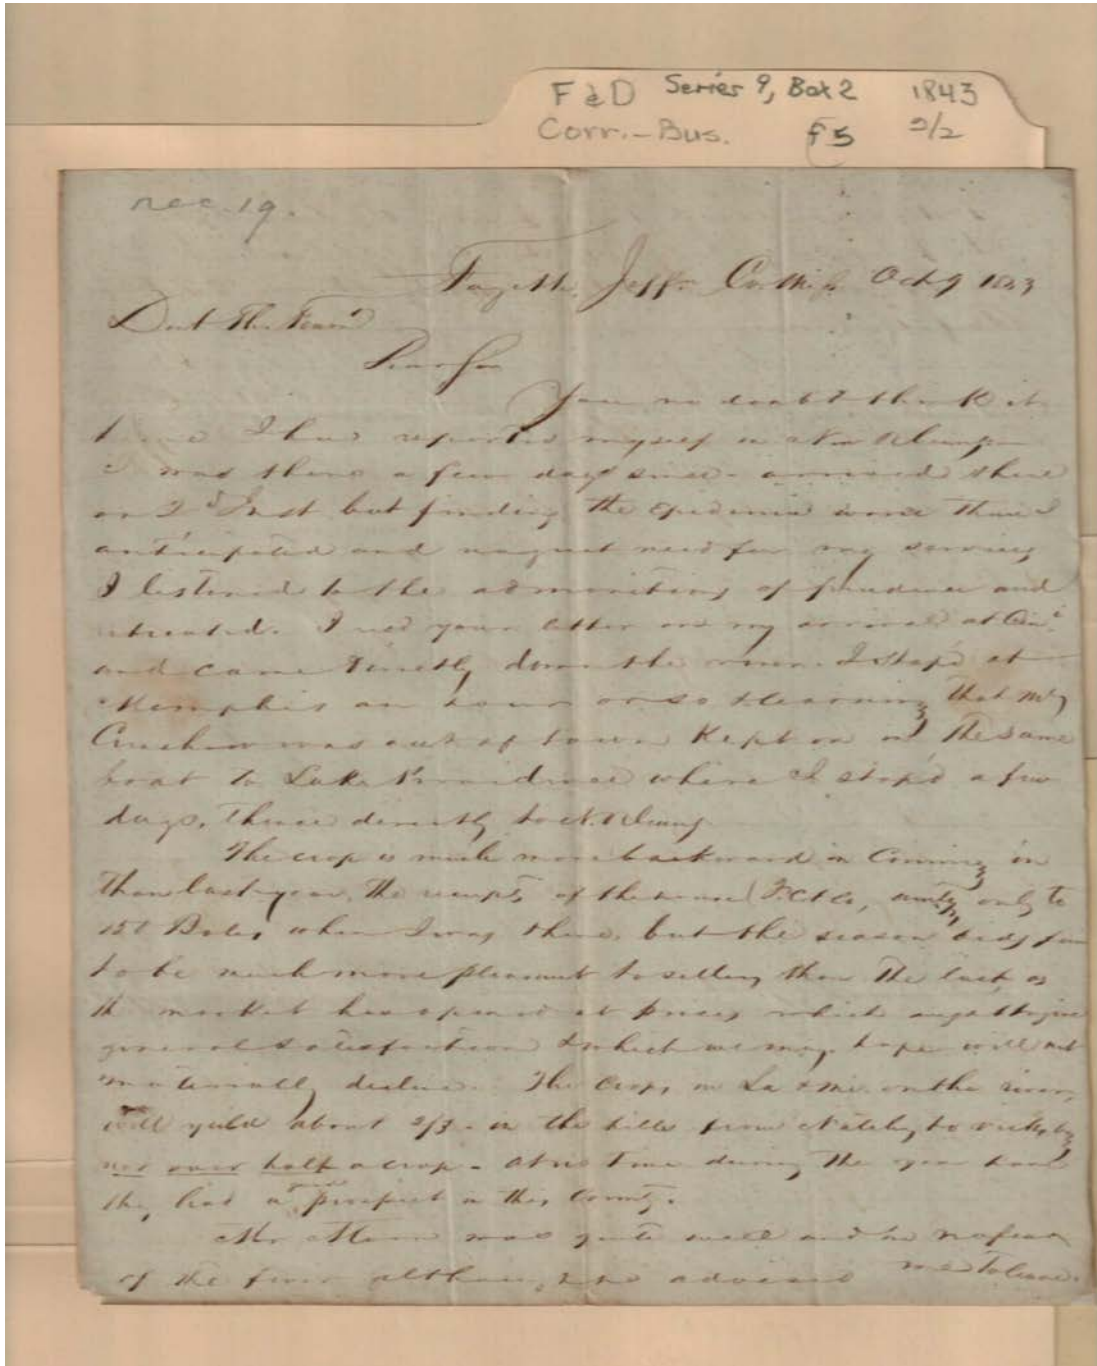 F & D Series 9, Box 2 1843
Corr.-Bus. f5 2/2
rec. 19.
Fayette, Jeffn Co. Mi. Oct 9 1843
Dear Sir
You no doubt think it
time I had reported myself in New Orleans
I was there a few days since - arrived there
on 2d Inst but finding the Epidemic worse than I
anticipated and no great need for my services
I listened to the admonitions of prudence and
retreated. I recd your letter on my arrival at Cini
and came directly down the river. I stopd at
Memphis an hour or so & learning that Mr
was out of town Kept on in the same
boat to Lake Providence where I stopd a few
days, thence directly to N. Orleans
The crop is much more backward in Coming in
than last year, the receipts of the house only to
Bales when I was there, but the season bids fair
to be much more pleasant to selling than the last, as
the market has opened at prices which ought to give
general satisfaction & which we may hope will not
materially decline. The Crops in La & Mi. on the river,
will yield about 2/3 - in the hills from Natchez to Vicksbg
not over half a crop - at no time during the year have
they had a good prospect in this County.
Mr was quite well and in no fear
of the fever although he advised me to leave.